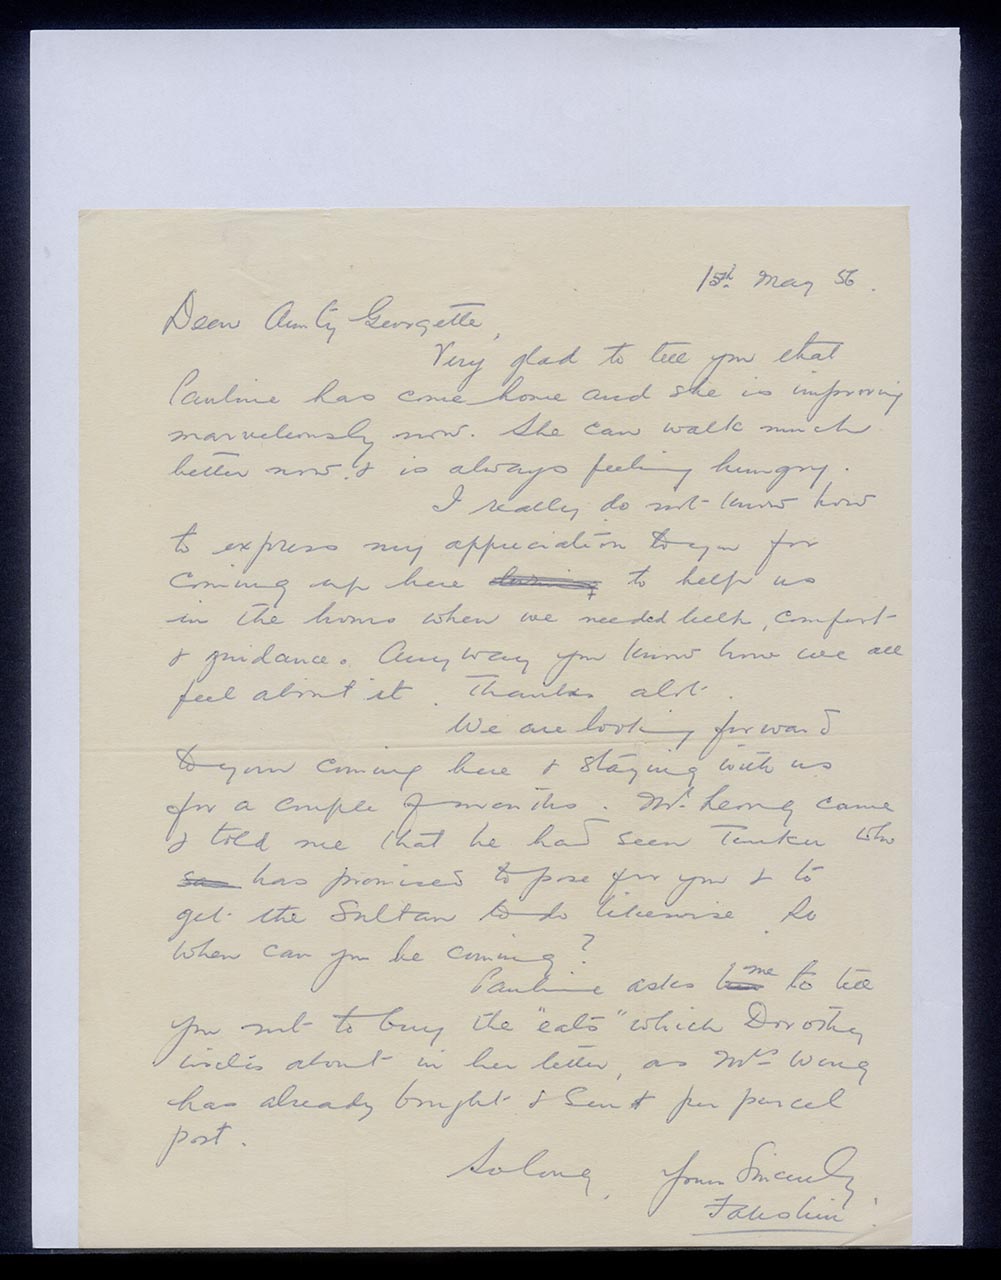 15th May 56.
Dear Aunty Georgette,
Very glad to tell you that
Pauline has come home and she is improving
marvelously now. She can walk much
better now & is always feeling hungry.
I really do not know how
to express my appreciation to you for
coming up here to help us
in the hours when we needed help, comfort
& guidance. Anyway you know how we all
feel about it. Thanks alot.
We are looking forward
to your coming here & staying with us
for a couple of months. Mr. Leong came
& told me that he had seen Tunku who
has promised to pose for you & to
get the Sultan to do likewise. So
when can you be coming?
Pauline asks me to tell
you not to buy the "eats" which Dorothy
about in her letter, as Mrs Wong
has already bought & sent per parcel
post.
So long, Yours Sincerely